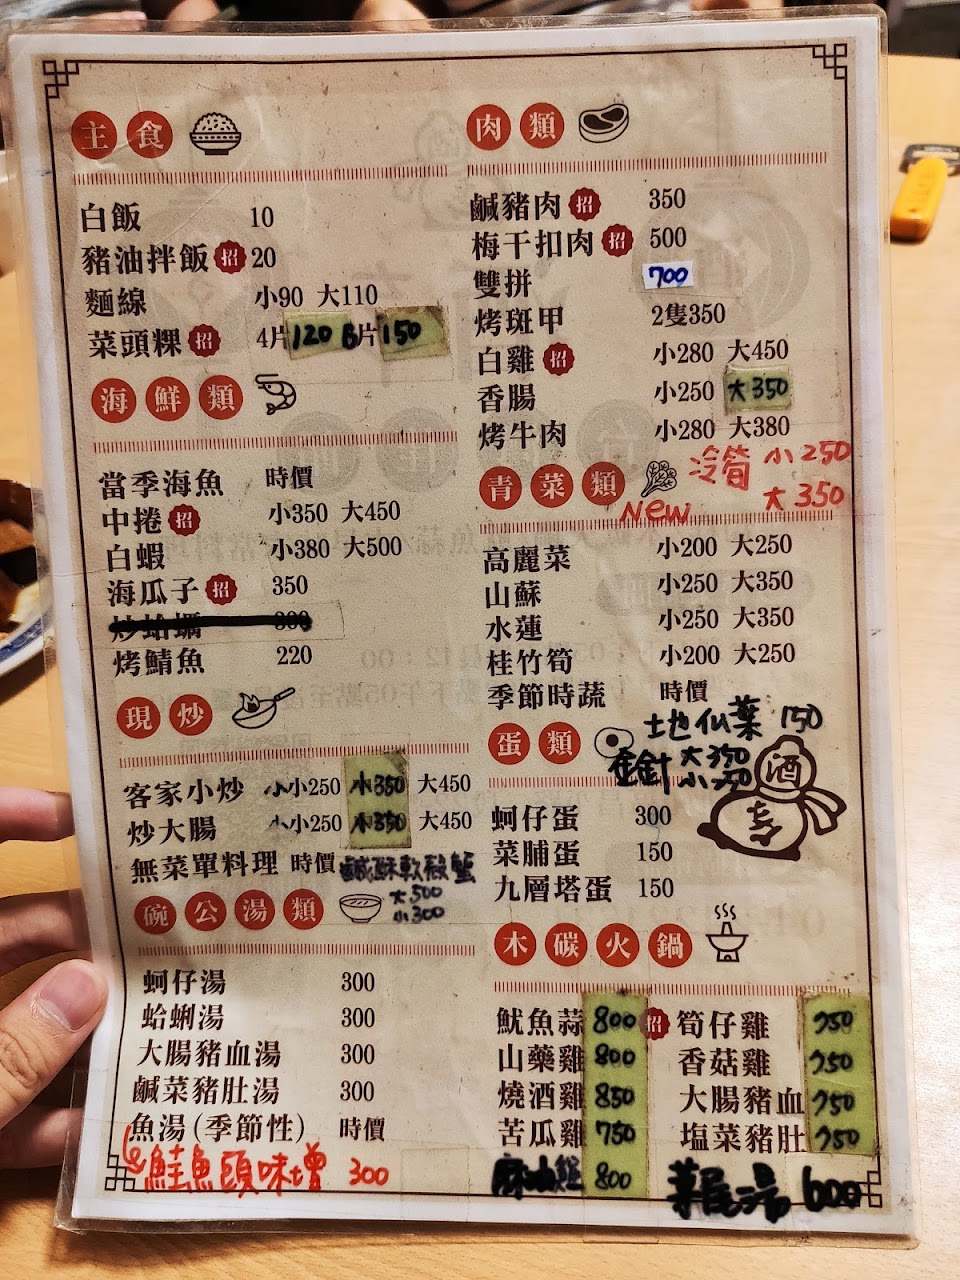 主食
白飯 10
豬油拌飯 招 20
麵線 小90 大110
菜頭粿 招 4片120 6片150
海鮮類
當季海魚 時價
中捲 招 小350 大450
白蝦 小380 大500
海瓜子 招 350
炒蛤蠣 300
烤鯖魚 220
現炒
客家小炒 小小250 小350 大450
炒大腸 小小250 小350 大450
無菜單料理 時價 鹹酥軟殼蟹
大500
小300
碗公湯類
蚵仔湯 300
蛤蜊湯 300
大腸豬血湯 300
鹹菜豬肚湯 300
魚湯(季節性) 時價
鮭魚頭味增 300
肉類
鹹豬肉 招 350
梅干扣肉 招 500
雙拼 700
烤斑甲 2隻350
白雞 招 小280 大450
香腸 小250 大350
烤牛肉 小280 大380
青菜類
冷筍 小250
大350
New
高麗菜 小200 大250
山蘇 小250 大350
水蓮 小250 大350
桂竹筍 小200 大250
季節時蔬 時價
土地仙菜 150
金針 大350
小250
蛋類
酒
蚵仔蛋 300
菜脯蛋 150
九層塔蛋 150
木碳火鍋
魷魚蒜 800 招 筍仔雞 750
山藥雞 800 香菇雞 750
燒酒雞 850 大腸豬血 750
苦瓜雞 750 塩菜豬肚 750
麻油雞 800 菜尾湯 600